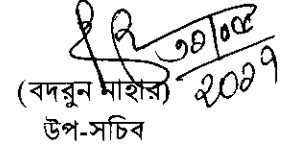 ৩০/০৫
২০১৭
(বদরুন নাহার)
উপ-সচিব